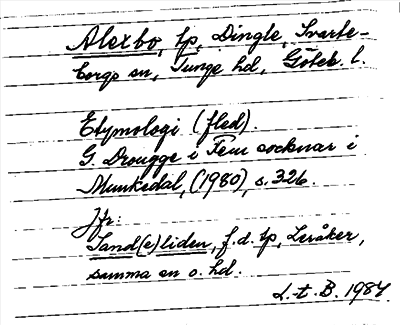 Alexbo, tp, Dingle, Svarte-
borgs sn, Tunge hd, Göteb. l.
Etymologi (fled).
G. Drougge i Fem socknar i
Munkedal, (1980), s. 326.
Jfr:
Sand(e)liden, f.d. tp, Leråker,
samma sn o. hd.
L.-t. B. 1987